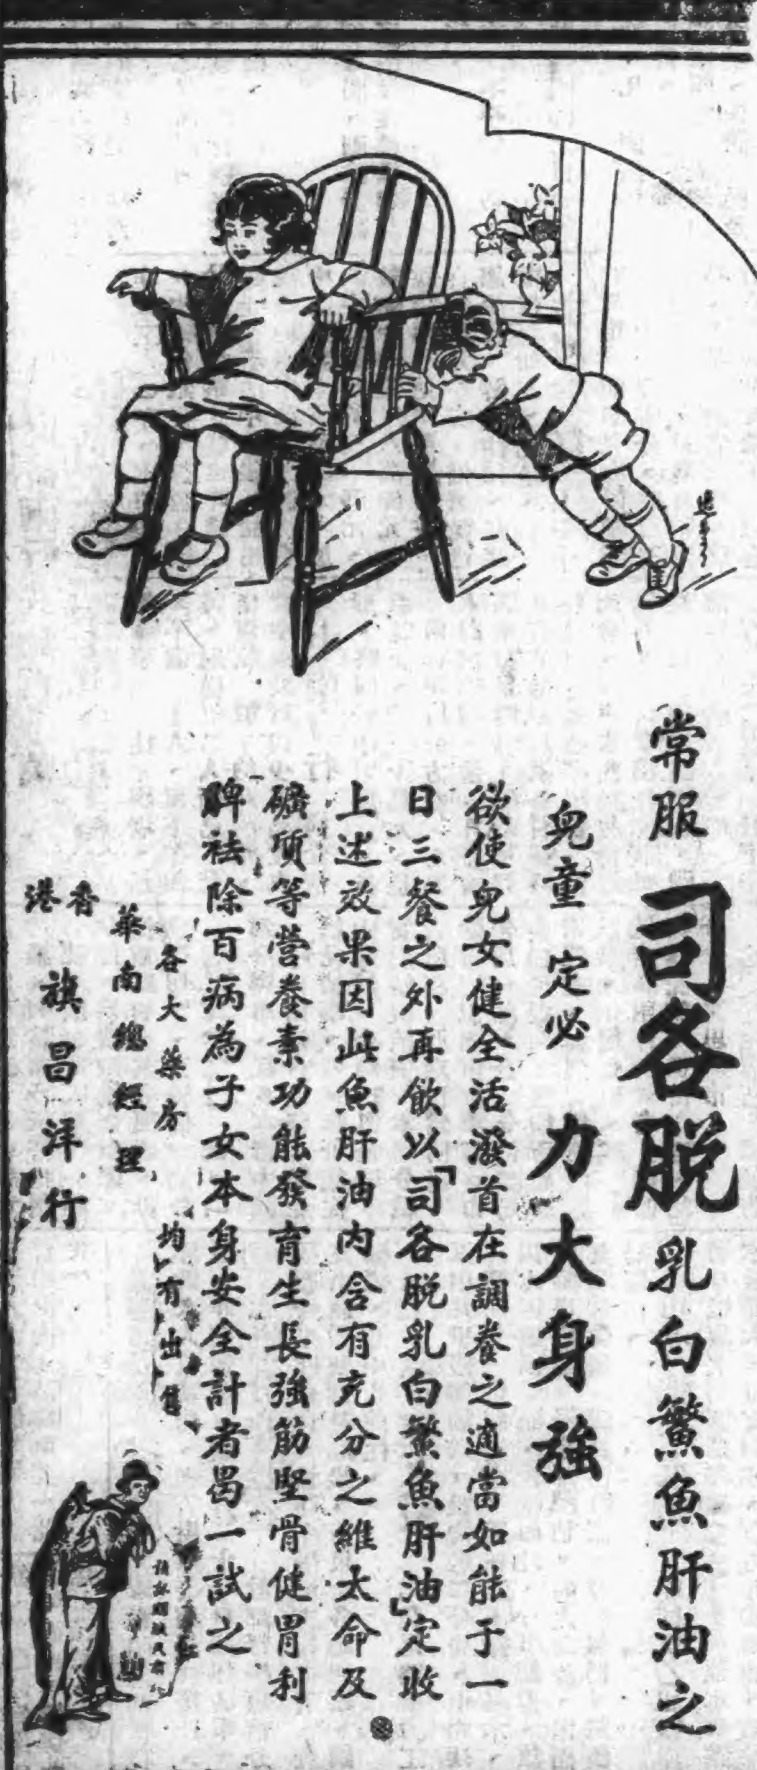 常服司各脱乳白鱉魚肝油之
兒童定必力大身強
欲使兒女健全活潑首在調養之適當如能于一
日三餐之外再飲以「司各脱乳白鱉魚肝油」定收
上述效果因此魚肝油內含有充分之維太命及
礦質等營養素功能發育生長強筋堅骨健胃利
脾祛除百病為子女本身安全計者曷一試之
各大藥房均有出售
華南總經理
香港旗昌洋行